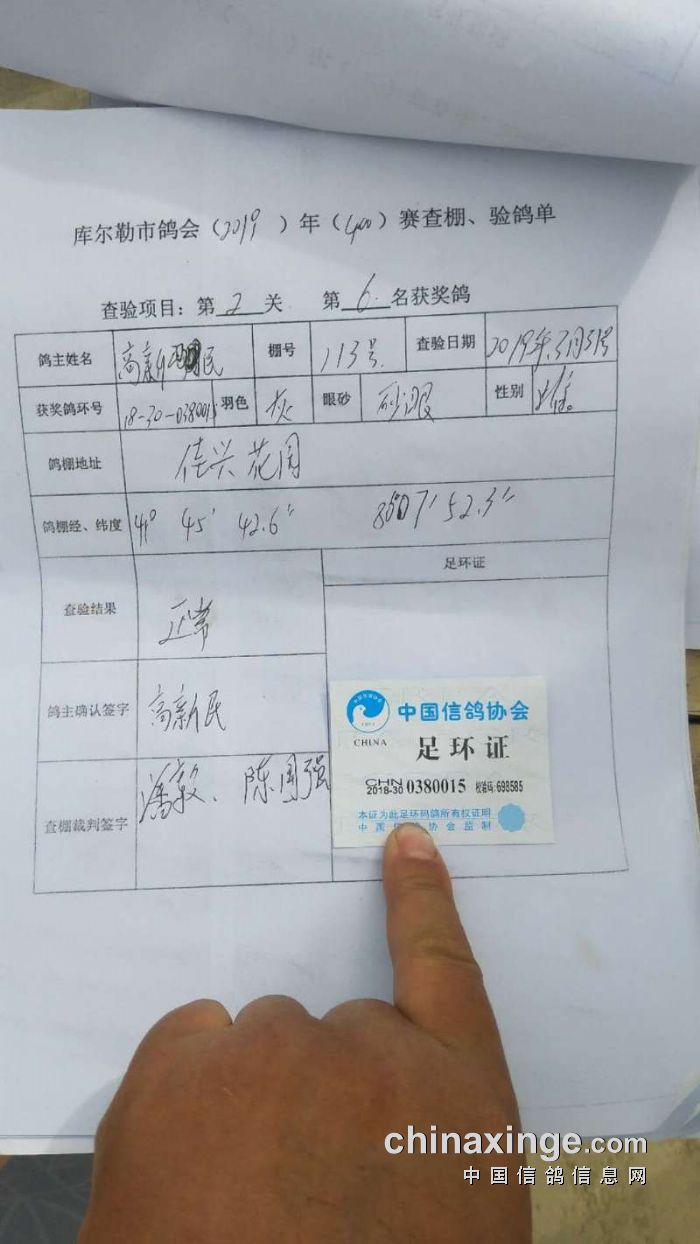 库尔勒市鸽会（2019）年（400）赛查棚、验鸽单
查验项目：第2关 第6名获奖鸽
鸽主姓名 高新民 棚号 113号 查验日期 2019年3月31号
获奖鸽环号 18-30-0380015 羽色 灰 眼砂 砂眼 性别 雄
鸽棚地址 佳兴花园
鸽棚经、纬度 41° 45′ 42.6″ 8607′52.3″
足环证
查验结果 正常
鸽主确认签字 高新民
查棚裁判签字 潘毅、陈国强
中国信鸽协会
CHINA 足环证
CHN
2018-30 0380015 校验码:698585
本证为此足环码鸽所有权证明
中国 协会监制
chinaxinge.com
中国信鸽信息网